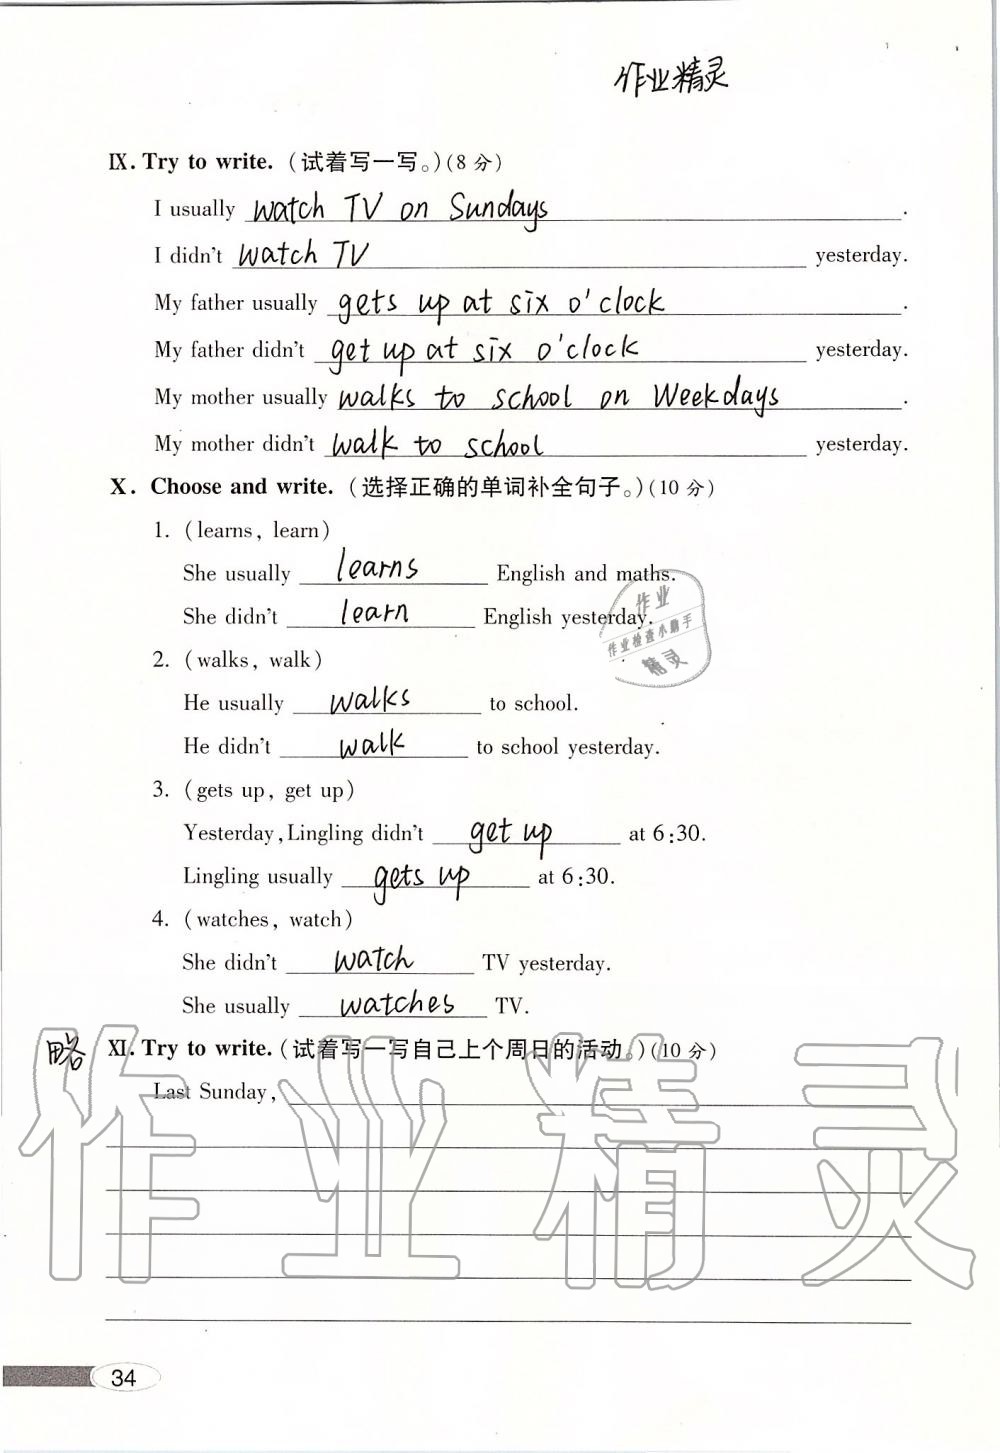 作业精灵
Ⅸ. Try to write. (试着写一写。)(8 分)
I usually watch TV on Sundays.
I didn't watch TV yesterday.
My father usually gets up at six o'clock.
My father didn't get up at six o'clock yesterday.
My mother usually walks to school on Weekdays.
My mother didn't walk to school yesterday.
Ⅹ. Choose and write. (选择正确的单词补全句子。)(10 分)
1. (learns, learn)
She usually learns English and maths.
She didn't learn English yesterday.
作业
作业检查小助手
精灵
2. (walks, walk)
He usually walks to school.
He didn't walk to school yesterday.
3. (gets up, get up)
Yesterday, Lingling didn't get up at 6:30.
Lingling usually gets up at 6:30.
4. (watches, watch)
She didn't watch TV yesterday.
She usually watches TV.
略 Ⅺ. Try to write. (试着写一写自己上个周日的活动。)(10 分)
Last Sunday,
作业精灵
34